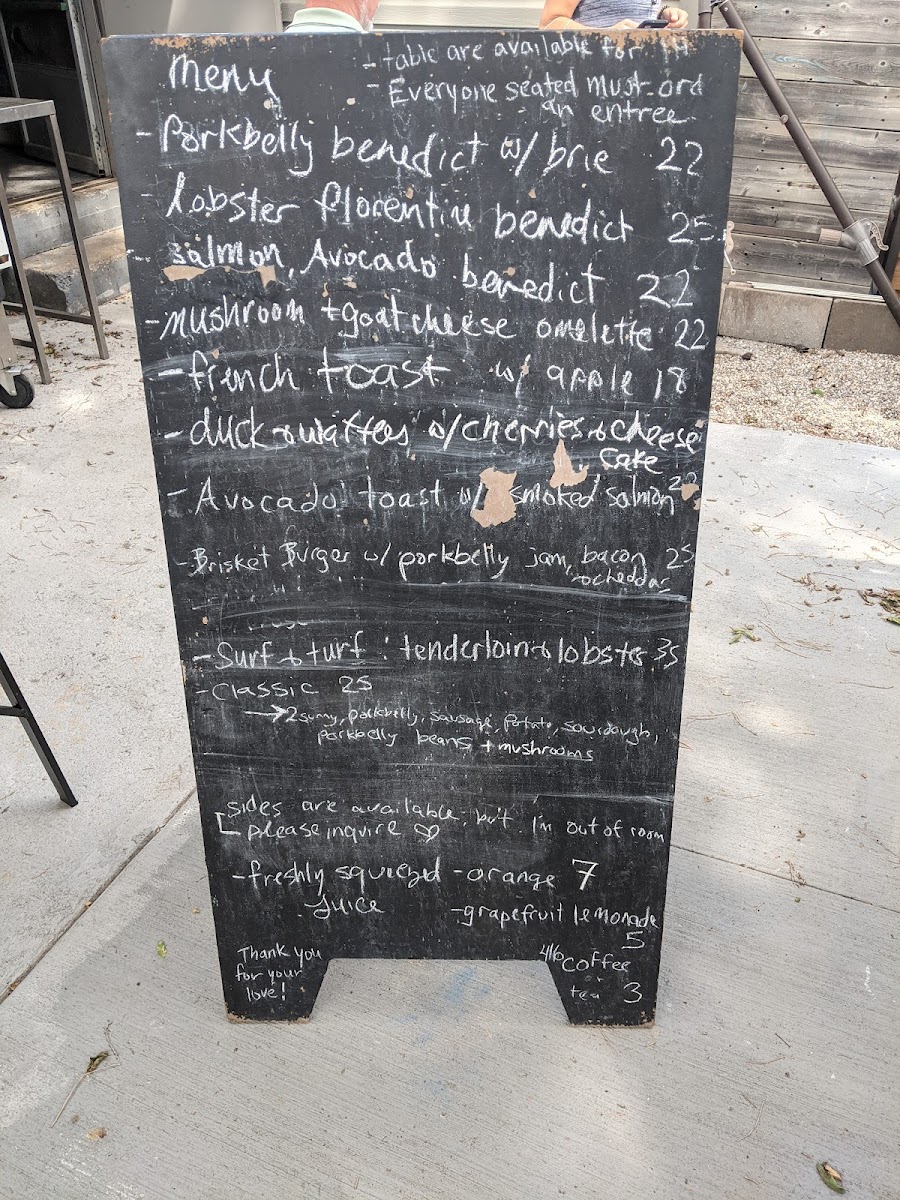 Menu
- table are available for 1H
- Everyone seated must ord
an entree
- Porkbelly benedict w/ brie 22
- lobster florentin benedict 25
- salmon, Avocado benedict 22
- mushroom + goat cheese omelette 22
- french toast w/ apple 18
- duck + waffles w/ cherries + cheese
cake
- Avocado toast w/ smoked salmon 22
- Brisket Burger w/ porkbelly jam, bacon 25
+ cheddar
- Surf + turf : tenderloin + lobster 35
- Classic 25
→ 2 sunny, porkbelly, sausage, potato, sourdough,
porkbelly beans + mushrooms
sides are available, but I'm out of room
please inquire ♡
- freshly squeezed - orange 7
Juice - grapefruit lemonade
5
Thank you
for your
love!
416 Coffee
or
tea 3